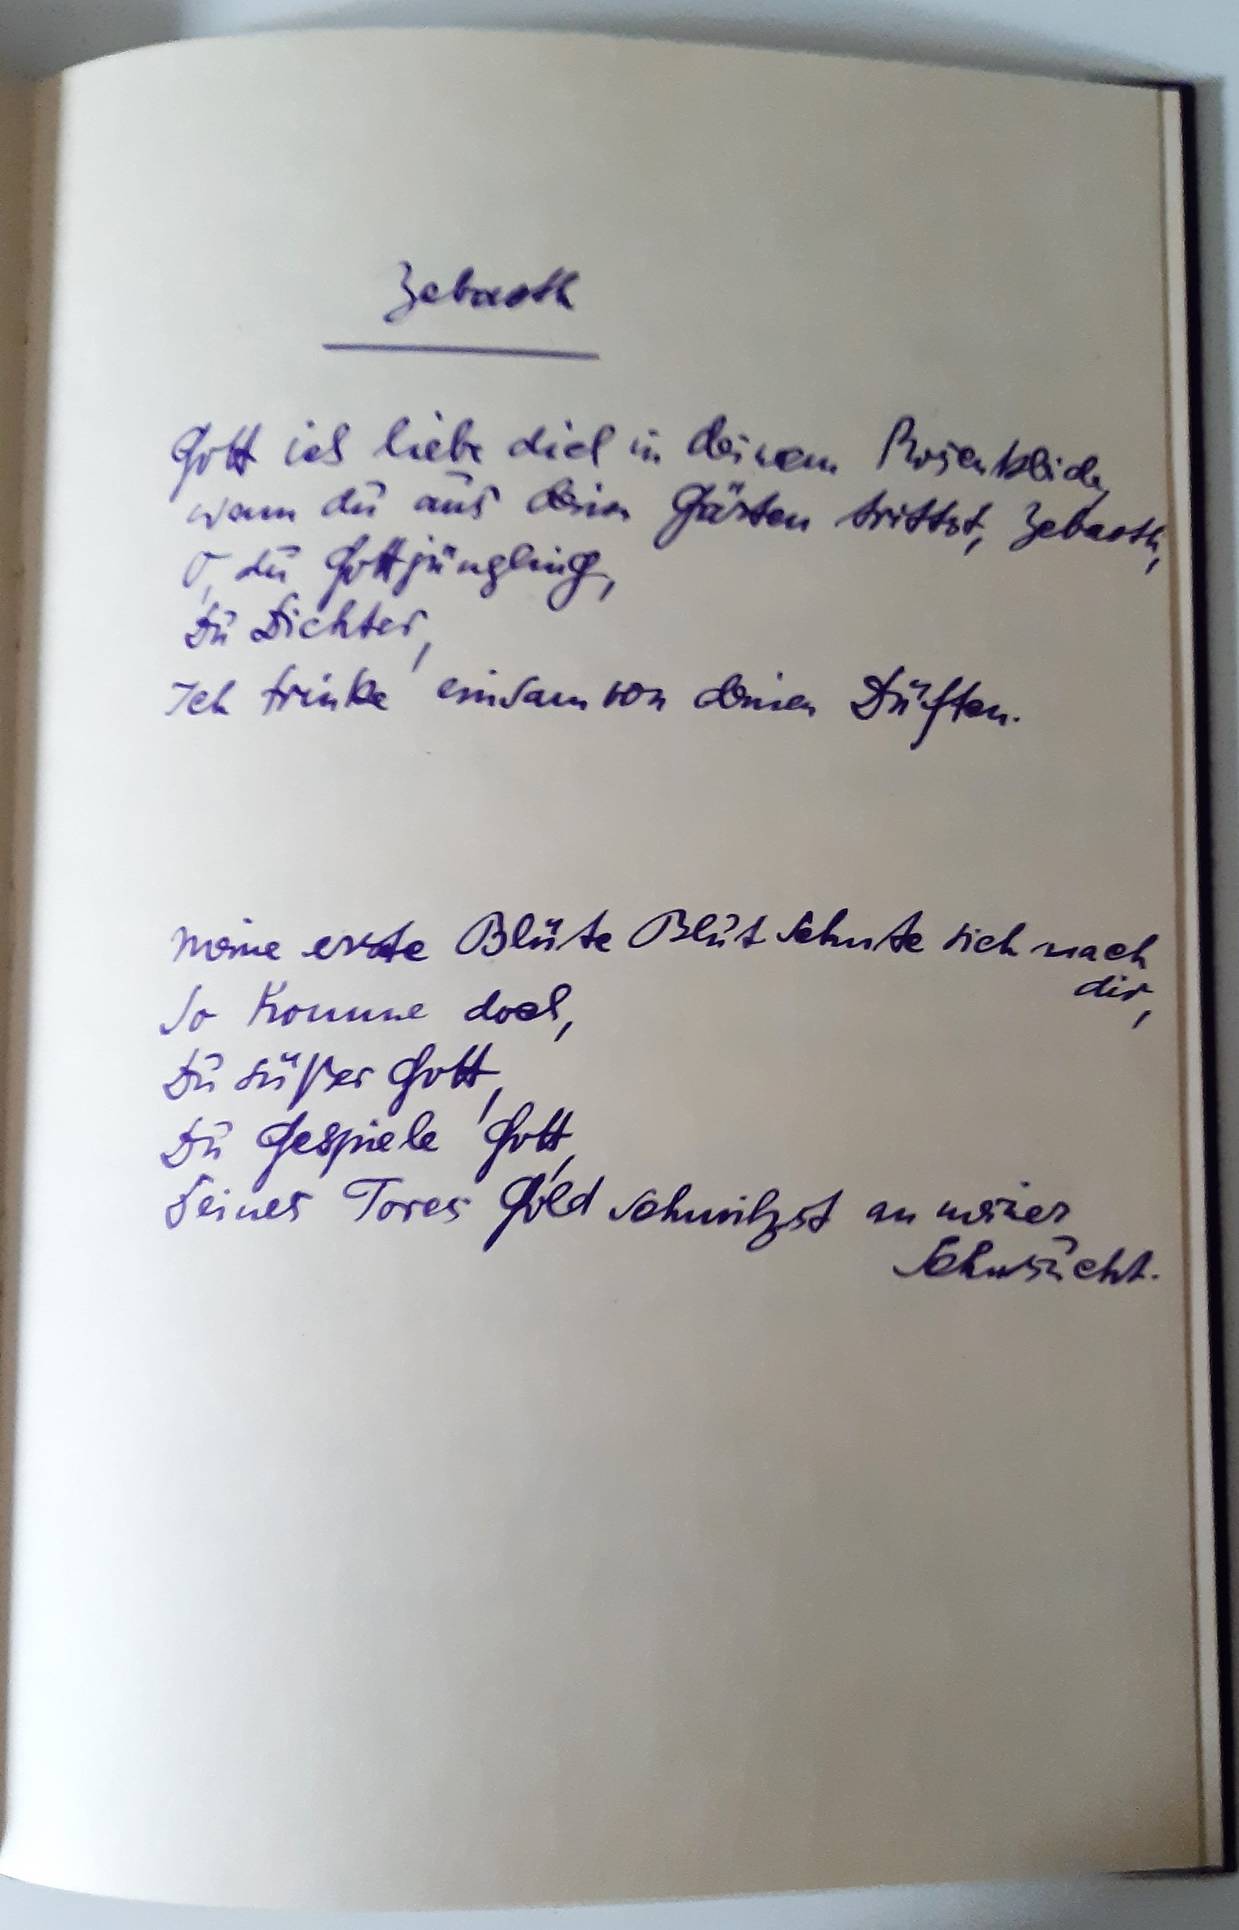 Zebaoth
Gott ich liebe dich in deinem Rosenkleide,
wenn du aus deinen Gärten trittst, Zebaoth,
O, du Gottjüngling,
Du Dichter,
Ich trinke einsam von deinen Düften.
Meine erste Blüte Blut sehnte sich nach
dir,
So komme doch,
Du süßer Gott,
Du Gespiele Gott,
Deines Tores Gold schmilzt an meiner
Sehnsucht.